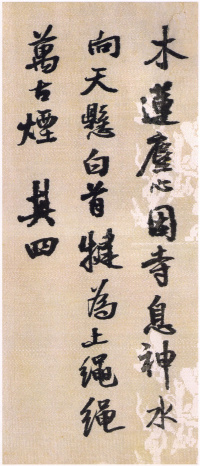 木蓮塵心因寺息神水
向天懸白首犍為上绳绳
萬古煙 其四